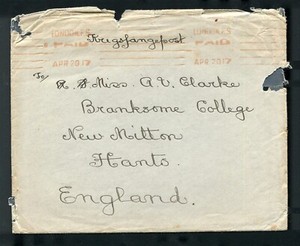 LONDON F.S. LONDON F.S.
PAID PAID
APR 20 17 APR 20 17
Krigsfangepost
To/ R. S Miss. A. V. Clarke
Branksome College
New Milton
Hants.
England.